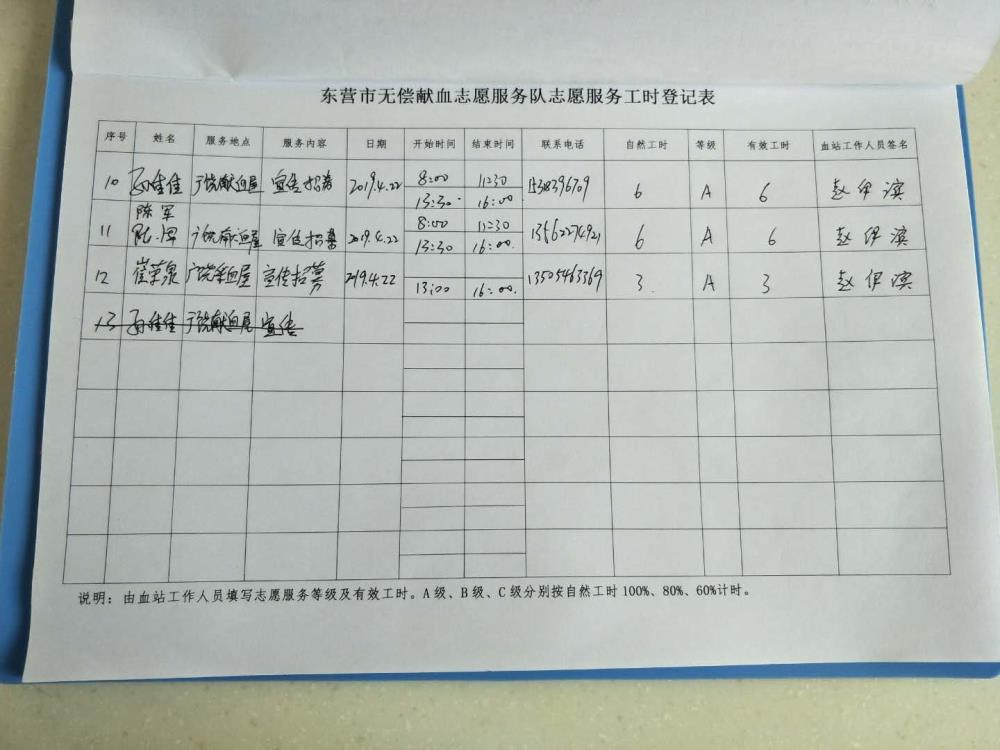 东营市无偿献血志愿服务队志愿服务工时登记表
序号 姓名 服务地点 服务内容 日期 开始时间 结束时间 联系电话 自然工时 等级 有效工时 血站工作人员签名
10 孙佳佳 广饶献血屋 宣传招募 2019.4.22 8:00 11:30 6 A 6 赵伊滨
13:30 16:00
陈军
11 广饶献血屋 宣传招募 2019.4.22 8:00 11:30 13562274921 6 A 6 赵伊滨
13:30 16:00.
12 崔荣泉 广饶献血屋 宣传招募 2019.4.22 13:00 16:00. 13505463369 3. A 3 赵伊滨
13 孙佳佳 广饶献血屋 宣传
说明：由血站工作人员填写志愿服务等级及有效工时。A级、B级、C级分别按自然工时100%、80%、60%计时。